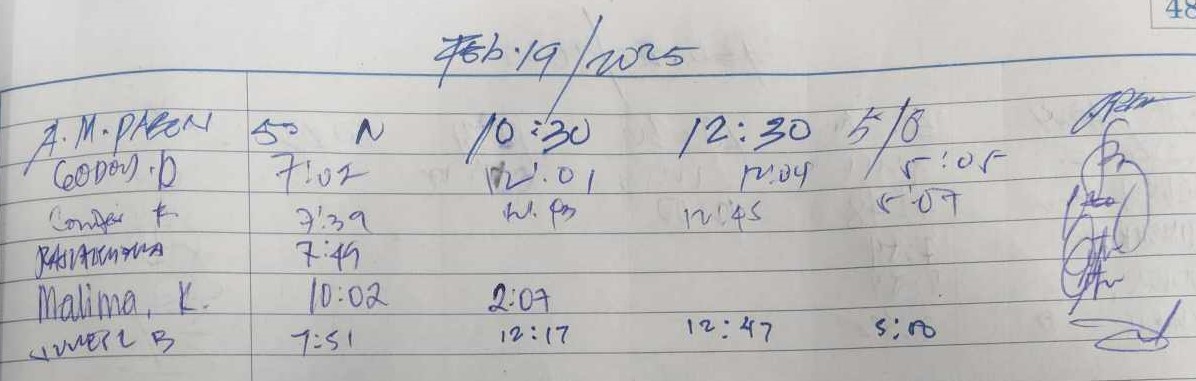 48
Feb. 19/2025
A. M. PABON 50 N 10:30 12:30 5/8
GODOY. D 7:02 12:01 12:04 5:05
7:39 12:45 5:07
7:49
Malima, K. 10:02 2:07
B 7:51 12:17 12:47 5:10